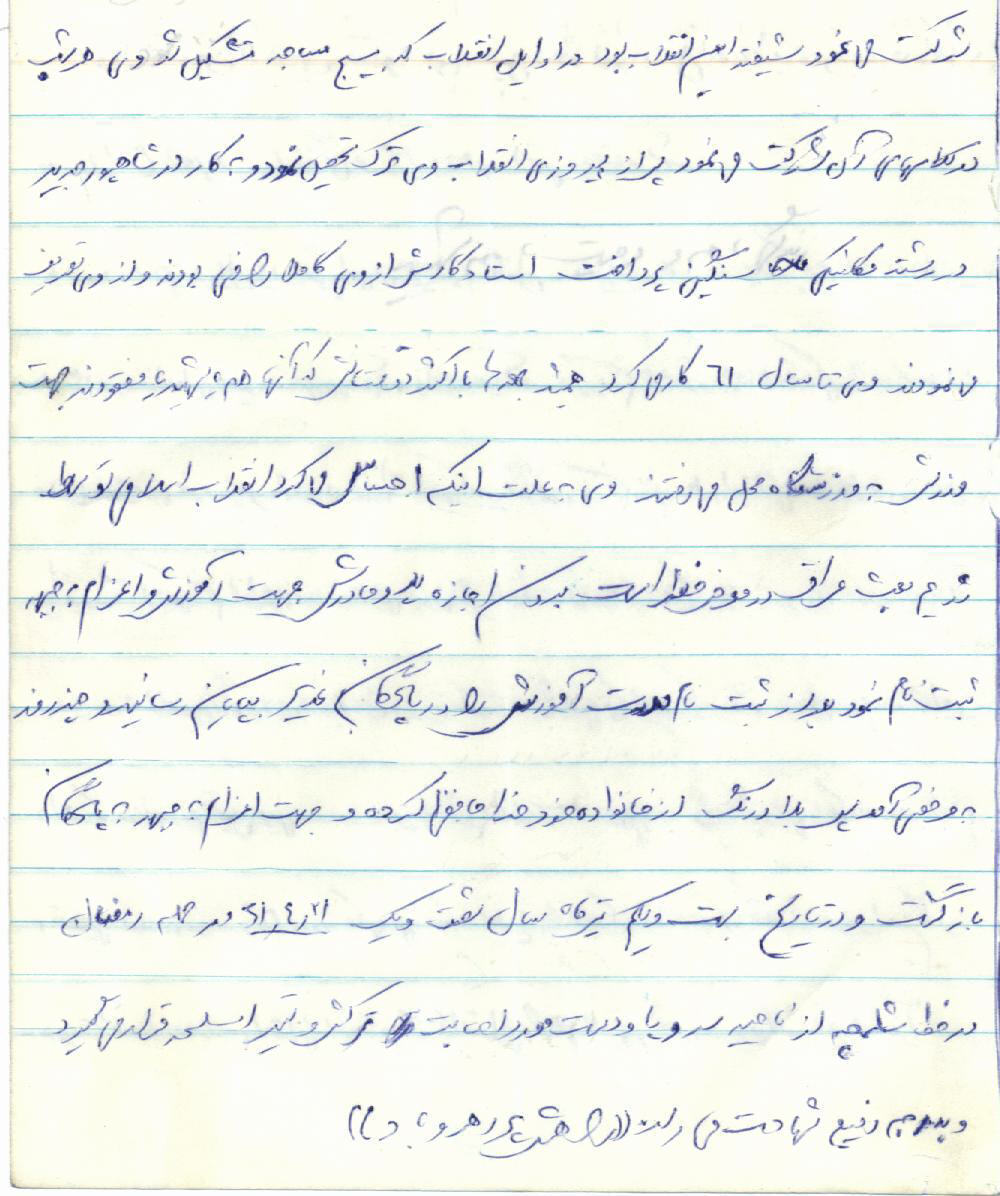 شرکت می نمود شیفته این انقلاب بود در اوایل انقلاب که بسیج مساجد تشکیل شد وی هر شب
در کلاسهای آن شرکت می نمود پس از پیروزی انقلاب وی ترک تحصیل نمود و به کار در شاهپور جدید
در رشته مکانیکی سنگین پرداخت استاد کارش از وی کاملا راضی بودند و از وی تعریف
می نمودند وی تا سال ٦١ کار می کرد همیشه با اکثر دوستانش که آنها هم شهید یا مفقودند جهت
ورزش به ورزشگاه محل می رفتند وی به علت اینکه احساس می کرد انقلاب اسلامی توسط
رژیم بعث عراق در معرض خطر است بدون اجازه پدر و مادرش جهت آموزش و اعزام به جبهه
ثبت نام نمود بعد از ثبت نام مدت آموزش را در پادگان غدیر بپایان رسانید و چند روز
به مرخصی آمد پس بلادرنگ از خانواده خود خداحافظی کرده و جهت اعزام به جبهه به پادگان
بازگشت و در تاریخ بیست و یکم تیرماه سال شصت و یک ٦١/٤/٢١ در حمله رمضان
در خط شلمچه از ناحیه سر و پا و دست مورد اصابت ترکش و تیر اسلحه قرار می گیرد
و بدرجه رفیع شهادت می رسد ((راهش پر رهرو باد))